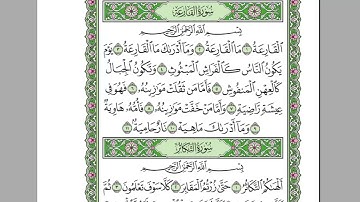 سُورَةُ القَارِعَةِ
بِسْمِ اللَّهِ الرَّحْمَٰنِ الرَّحِيمِ
الْقَارِعَةُ ١ مَا الْقَارِعَةُ ٢ وَمَا أَدْرَاكَ مَا الْقَارِعَةُ ٣ يَوْمَ
يَكُونُ النَّاسُ كَالْفَرَاشِ الْمَبْثُوثِ ٤ وَتَكُونُ الْجِبَالُ
كَالْعِهْنِ الْمَنفُوشِ ٥ فَأَمَّا مَن ثَقُلَتْ مَوَازِينُهُ ٦ فَهُوَ فِي
عِيشَةٍ رَّاضِيَةٍ ٧ وَأَمَّا مَنْ خَفَّتْ مَوَازِينُهُ ٨ فَأُمُّهُ هَاوِيَةٌ
٩ وَمَا أَدْرَاكَ مَا هِيَهْ ١٠ نَارٌ حَامِيَةٌ ١١
سُورَةُ التَّكَاثُرِ
بِسْمِ اللَّهِ الرَّحْمَٰنِ الرَّحِيمِ
أَلْهَاكُمُ التَّكَاثُرُ ١ حَتَّىٰ زُرْتُمُ الْمَقَابِرَ ٢ كَلَّا سَوْفَ تَعْلَمُونَ ٣ ثُمَّ